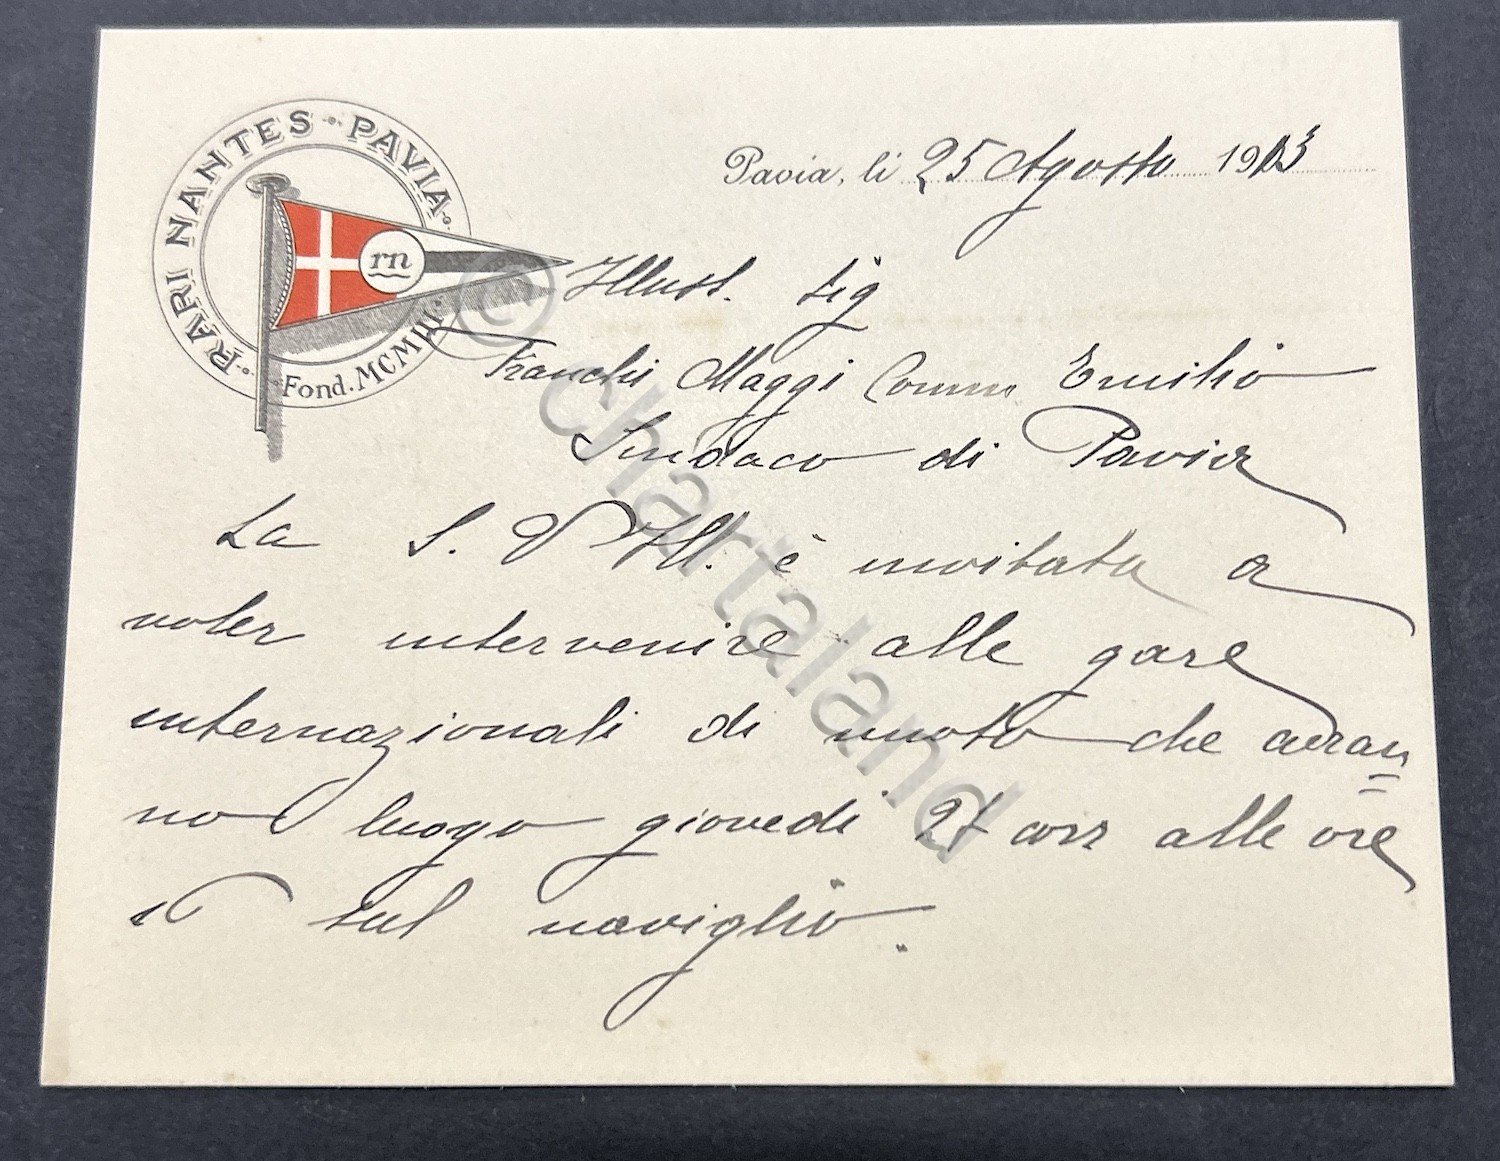 RARI NANTES · PAVIA
rn
Fond. MCMIII
Pavia, li 25 Agosto 1913
Illust. Sig
Franchi Maggi Comm Emilio
Sindaco di Pavia
La S. V Ill. è invitata a
voler intervenire alle gare
internazionali di nuoto che avran=
no luogo giovedi 27 corr alle ore
sul naviglio.
© Chartaland